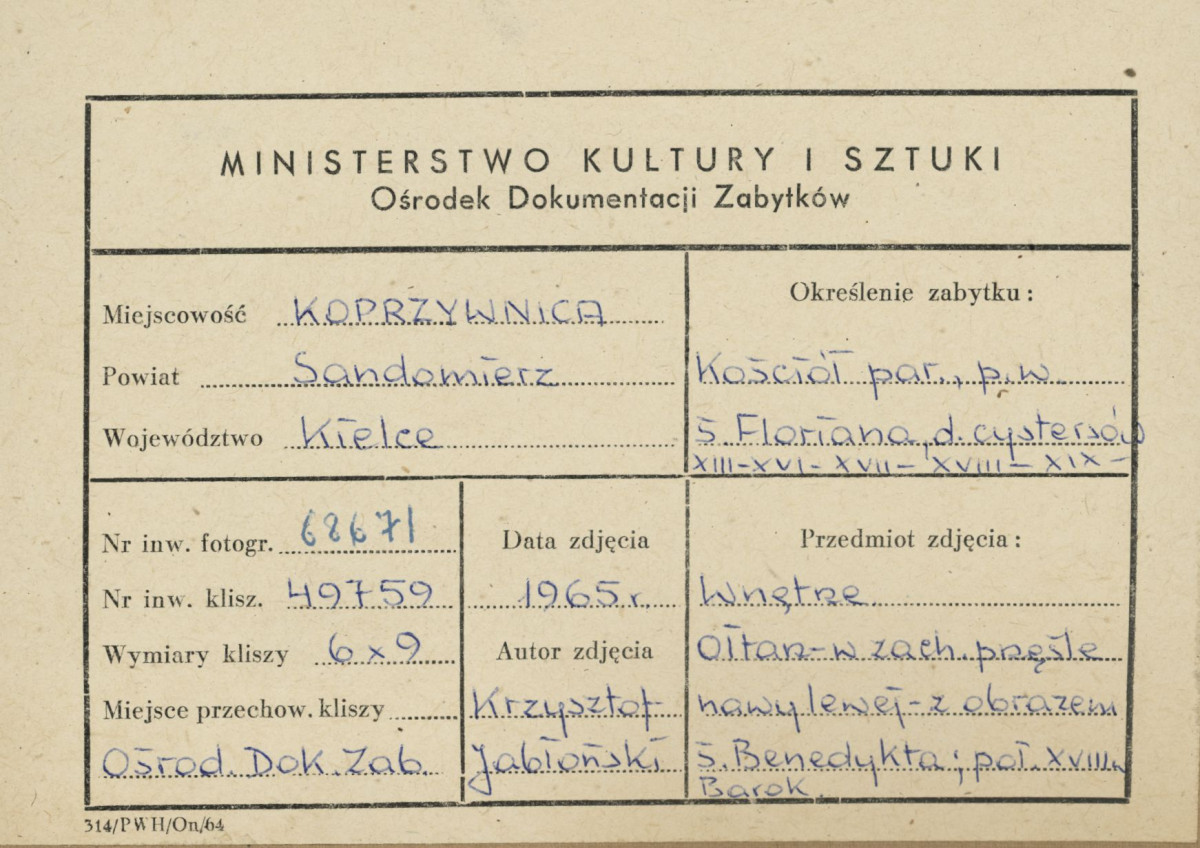 MINISTERSTWO KULTURY I SZTUKI
Ośrodek Dokumentacji Zabytków
Miejscowość KOPRZYWNICA
Powiat Sandomierz
Województwo Kielce
Określenie zabytku:
Kościół par., p.w.
ś. Floriana, d. cystersów
XIII-XVI-XVII-XVIII-XIX-
Nr inw. fotogr. 68671
Nr inw. klisz. 49759
Wymiary kliszy 6x9
Miejsce przechow. kliszy
Ośrod. Dok. Zab.
Data zdjęcia
1965 r.
Autor zdjęcia
Krzysztof
Jabłoński
Przedmiot zdjęcia:
Wnętrze
Ołtarz-w zach. przęśle
nawy lewej-z obrazem
ś. Benedykta; poł. XVIII w
Barok.
314/PWH/On/64